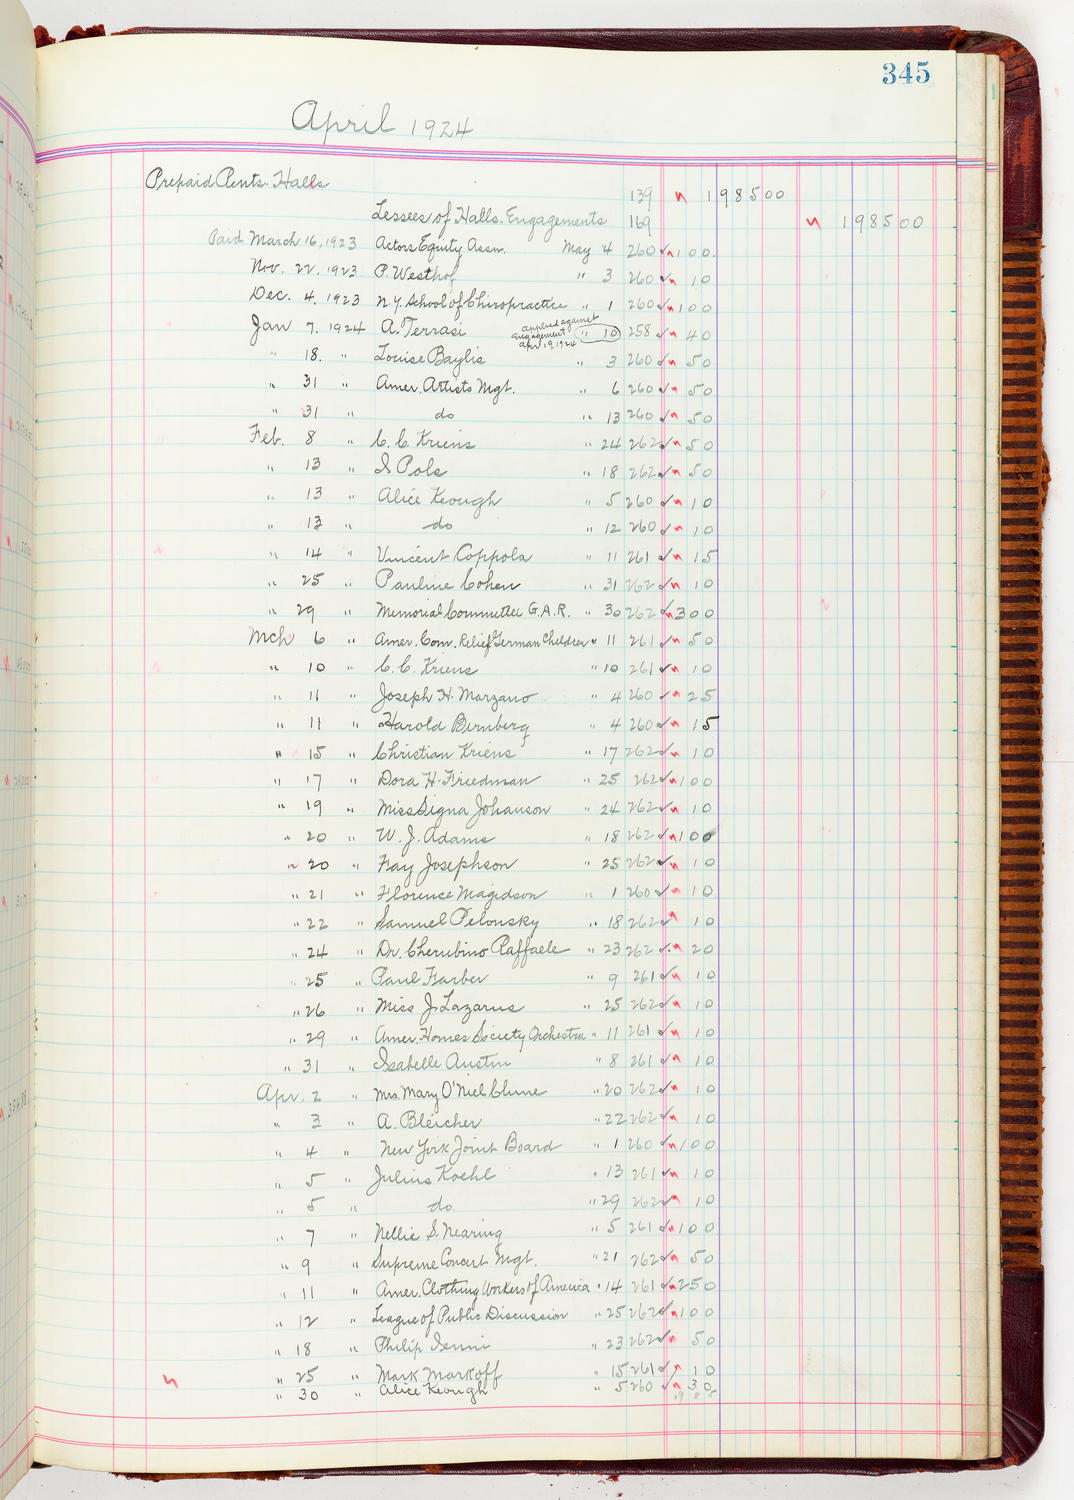 345
April 1924
Prepaid Rents. Halls 139 1985 00
Lessees of Halls. Engagements 169 1985 00
Paid March 16, 1923 Actors Equity Assn. May 4 260 ✓ 100.
Nov. 22. 1923 P. Westhof " 3 260 ✓ 10
Dec. 4. 1923 N.Y. School of Chiropractice " 1 260 ✓ 100
Jan 7. 1924 A. Terrasi applied against engagement Apr 19, 1924 " 10 258 ✓ 40
" 18. " Louise Baylis " 3 260 ✓ 50
" 31 " Amer. Artists Mgt. " 6 260 ✓ 50
" 31 " do " 13 260 ✓ 50
Feb. 8 " C. C. Kriens " 24 262 ✓ 50
" 13 " S Pols " 18 262 ✓ 50
" 13 " Alice Keough " 5 260 ✓ 10
" 13 " do " 12 260 ✓ 10
" 14 " Vincent Coppola " 11 261 ✓ 15
" 25 " Pauline Cohen " 31 262 ✓ 10
" 29 " Memorial Committee G.A.R. " 30 262 ✓ 300
Mch 6 " Amer. Com. Relief German Children " 11 261 ✓ 50
" 10 " C. C. Kriens " 10 261 ✓ 10
" 11 " Joseph H. Marzano " 4 260 ✓ 25
" 11 " Harold Birnberg " 4 260 ✓ 15
" 15 " Christian Kriens " 17 262 ✓ 10
" 17 " Dora H. Friedman " 25 262 ✓ 100
" 19 " Miss Signa Johanson " 24 262 ✓ 10
" 20 " W. J. Adams " 18 262 ✓ 100
" 20 " Fay Josephson " 25 262 ✓ 10
" 21 " Florence Magidson " 1 260 ✓ 10
" 22 " Samuel Pelonsky " 18 262 ✓ 10
" 24 " Dr. Cherubino Raffaele " 23 262 ✓ 20
" 25 " Paul Farber " 9 261 ✓ 10
" 26 " Miss J. Lazarus " 25 262 ✓ 10
" 29 " Amer. Homes Society Orchestra " 11 261 ✓ 10
" 31 " Isabelle Austin " 8 261 ✓ 10
Apr. 2 " Mrs. Mary O'Niel Clune " 20 262 ✓ 10
" 3 " A. Bleicher " 22 262 ✓ 10
" 4 " New York Joint Board " 1 260 ✓ 100
" 5 " Julius Koehl " 13 261 ✓ 10
" 5 " do. " 29 262 ✓ 10
" 7 " Nellie S. Nearing " 5 261 ✓ 100
" 9 " Supreme Concert Mgt. " 21 262 ✓ 50
" 11 " Amer. Clothing Workers of America " 14 261 ✓ 250
" 12 " League of Public Discussion " 25 262 ✓ 100
" 18 " Philip Ienni " 23 262 ✓ 50
" 25 " Mark Markoff " 15 261 ✓ 10
" 30 " Alice Keough " 5 260 ✓ 30
1985